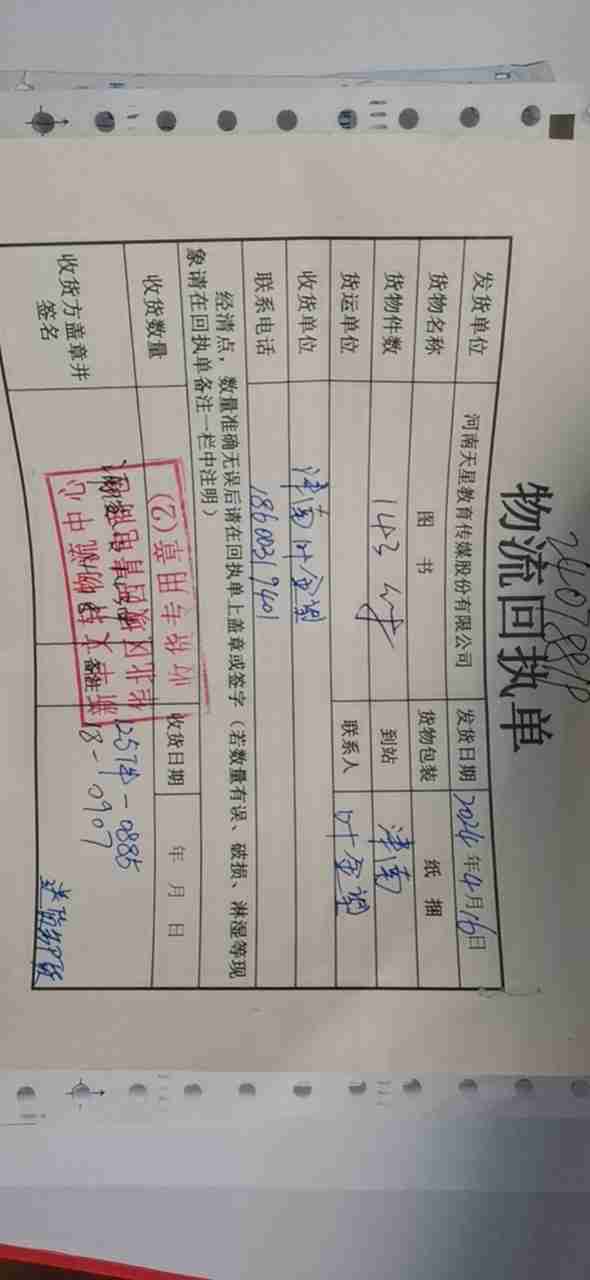 物流回执单
发货单位 河南天星教育传媒股份有限公司 发货日期 2024年4月16日
货物名称 图 书 货物包装 纸 捆
货物件数 143件 到站 津南
货运单位 联系人 叶金梁
收货单位 津南叶金梁
联系电话 18600319401
经清点，数量准确无误后请在回执单上盖章或签字（若数量有误、破损、淋湿等现
象请在回执单备注一栏中注明）
收货数量 收货日期 年 月 日
收货方盖章并
签名
备注
257件-0885
18-0907
专用章(2)